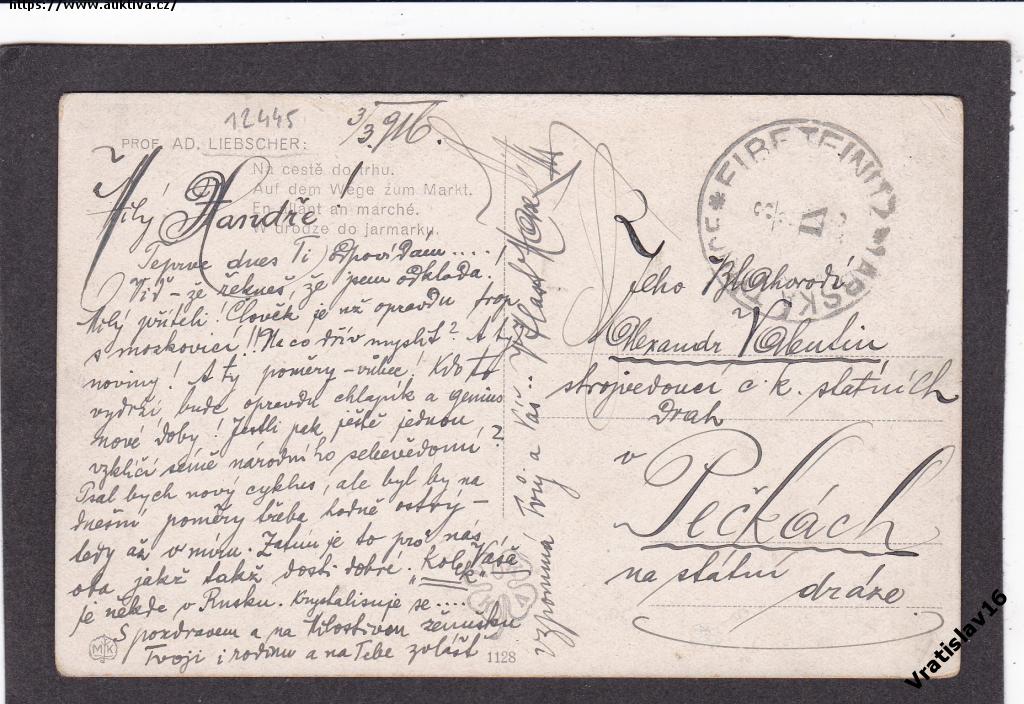 https://www.auktiva.cz/
12445
3/3 916
PROF. AD. LIEBSCHER:
Na cestě do trhu.
Auf dem Wege zum Markt.
En allant an marché.
W drodze do jarmarku.
Milý Handře!
Teprve dnes Ti odpovídám....
Viď - že řekneš, že jsem odkláda!
Milý příteli! Člověk je už opravdu
s moskovicí! Na co dřív myslit? A ty
noviny! A ty poměry - vůbec! Kdo to
vydrží bude opravdu chlapík a genius
nové doby! Jestli pak ještě jednou
vzklíčí símě národního sebevědomí?
Psal bych nový cyklus, ale byl by na
dnešní poměry třeba hodně ostrý -
tedy až v míru. Zatím je to pro nás
oba jakž takž dosti dobré. Vášá
je někde v Rusku. Krystalisuje se....
S pozdravem a na Milostivou
Tvoji i rodinu a na Tebe zvlášť
vzpomíná Tvůj a Váš..
MK
1128
Jeho Blahorodí
Alexandr Valentin
strojvedoucí c. k. státních
Drah
v
Pečkách
na státní
dráze.
Vratislav16